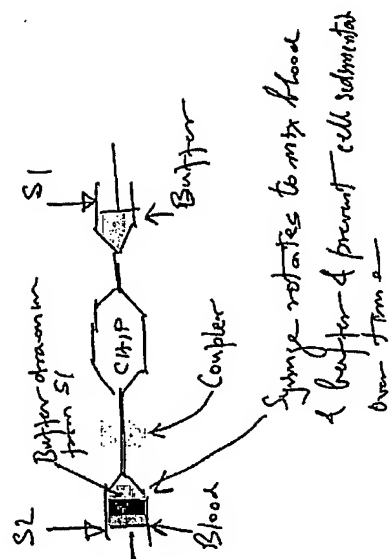 S2
Buffer drawn in
from S1
S1
CHIP
Blood
Coupler
Buffer
Syringe rotates to mix blood
& buffer & prevent cell sedimentation
over time